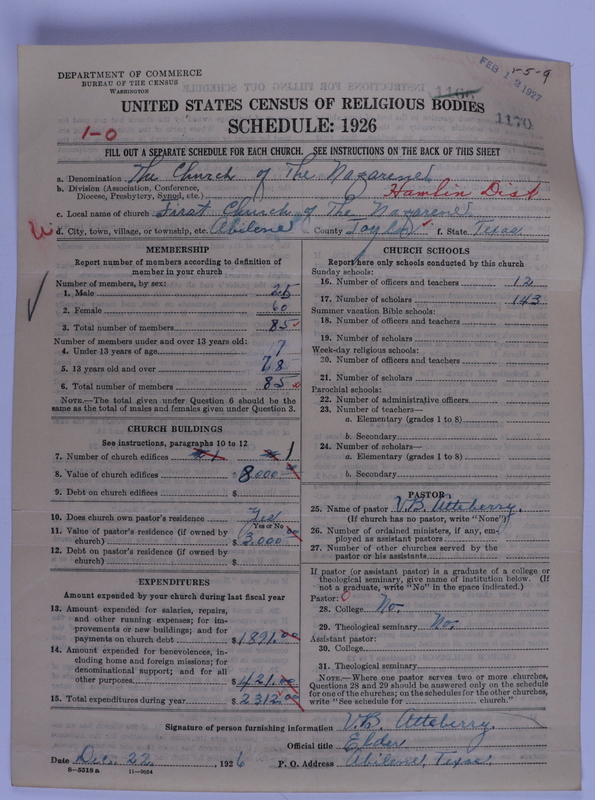 DEPARTMENT OF COMMERCE
BUREAU OF THE CENSUS
WASHINGTON
FEB 1 9 1927
5-9
1166
1170
UNITED STATES CENSUS OF RELIGIOUS BODIES
1-0
SCHEDULE: 1926
FILL OUT A SEPARATE SCHEDULE FOR EACH CHURCH. SEE INSTRUCTIONS ON THE BACK OF THIS SHEET
a. Denomination The Church of The Nazarene
b. Division (Association, Conference, Diocese, Presbytery, Synod, etc.) Hamlin Dist
c. Local name of church First Church of The Nazarene
d. City, town, village, or township, etc. Abilene County Taylor f. State Texas
MEMBERSHIP
Report number of members according to definition of member in your church
Number of members, by sex:
1. Male 25
2. Female 60
3. Total number of members 85
Number of members under and over 13 years old:
4. Under 13 years of age 7
5. 13 years old and over 78
6. Total number of members 85
NOTE.—The total given under Question 6 should be the same as the total of males and females given under Question 3.
CHURCH BUILDINGS
See instructions, paragraphs 10 to 12
7. Number of church edifices 1
8. Value of church edifices $ 8,000
9. Debt on church edifices $
10. Does church own pastor's residence Yes
Yes or No
11. Value of pastor's residence (if owned by church) $ 3,000.00
12. Debt on pastor's residence (if owned by church) $
EXPENDITURES
Amount expended by your church during last fiscal year
13. Amount expended for salaries, repairs, and other running expenses; for improvements or new buildings; and for payments on church debt $ 1891.00
14. Amount expended for benevolences, including home and foreign missions; for denominational support; and for all other purposes $ 421.00
15. Total expenditures during year $ 2312.00
CHURCH SCHOOLS
Report here only schools conducted by this church
Sunday schools:
16. Number of officers and teachers 12
17. Number of scholars 143
Summer vacation Bible schools:
18. Number of officers and teachers
19. Number of scholars
Week-day religious schools:
20. Number of officers and teachers
21. Number of scholars
Parochial schools:
22. Number of administrative officers
23. Number of teachers—
a. Elementary (grades 1 to 8)
b. Secondary
24. Number of scholars—
a. Elementary (grades 1 to 8)
b. Secondary
PASTOR
25. Name of pastor V.B. Atteberry
(If church has no pastor, write "None")
26. Number of ordained ministers, if any, employed as assistant pastors
27. Number of other churches served by the pastor or his assistants
If pastor (or assistant pastor) is a graduate of a college or theological seminary, give name of institution below. (If not a graduate, write "No" in the space indicated.)
Pastor:
28. College No.
29. Theological seminary No.
Assistant pastor:
30. College
31. Theological seminary
NOTE.—Where one pastor serves two or more churches, Questions 28 and 29 should be answered only on the schedule for one of the churches; on the schedules for the other churches, write "See schedule for church."
Signature of person furnishing information V.B. Atteberry
Official title Elder
Date Dec. 22, 1926 P. O. Address Abilene, Texas.
8-5518a 11-9054